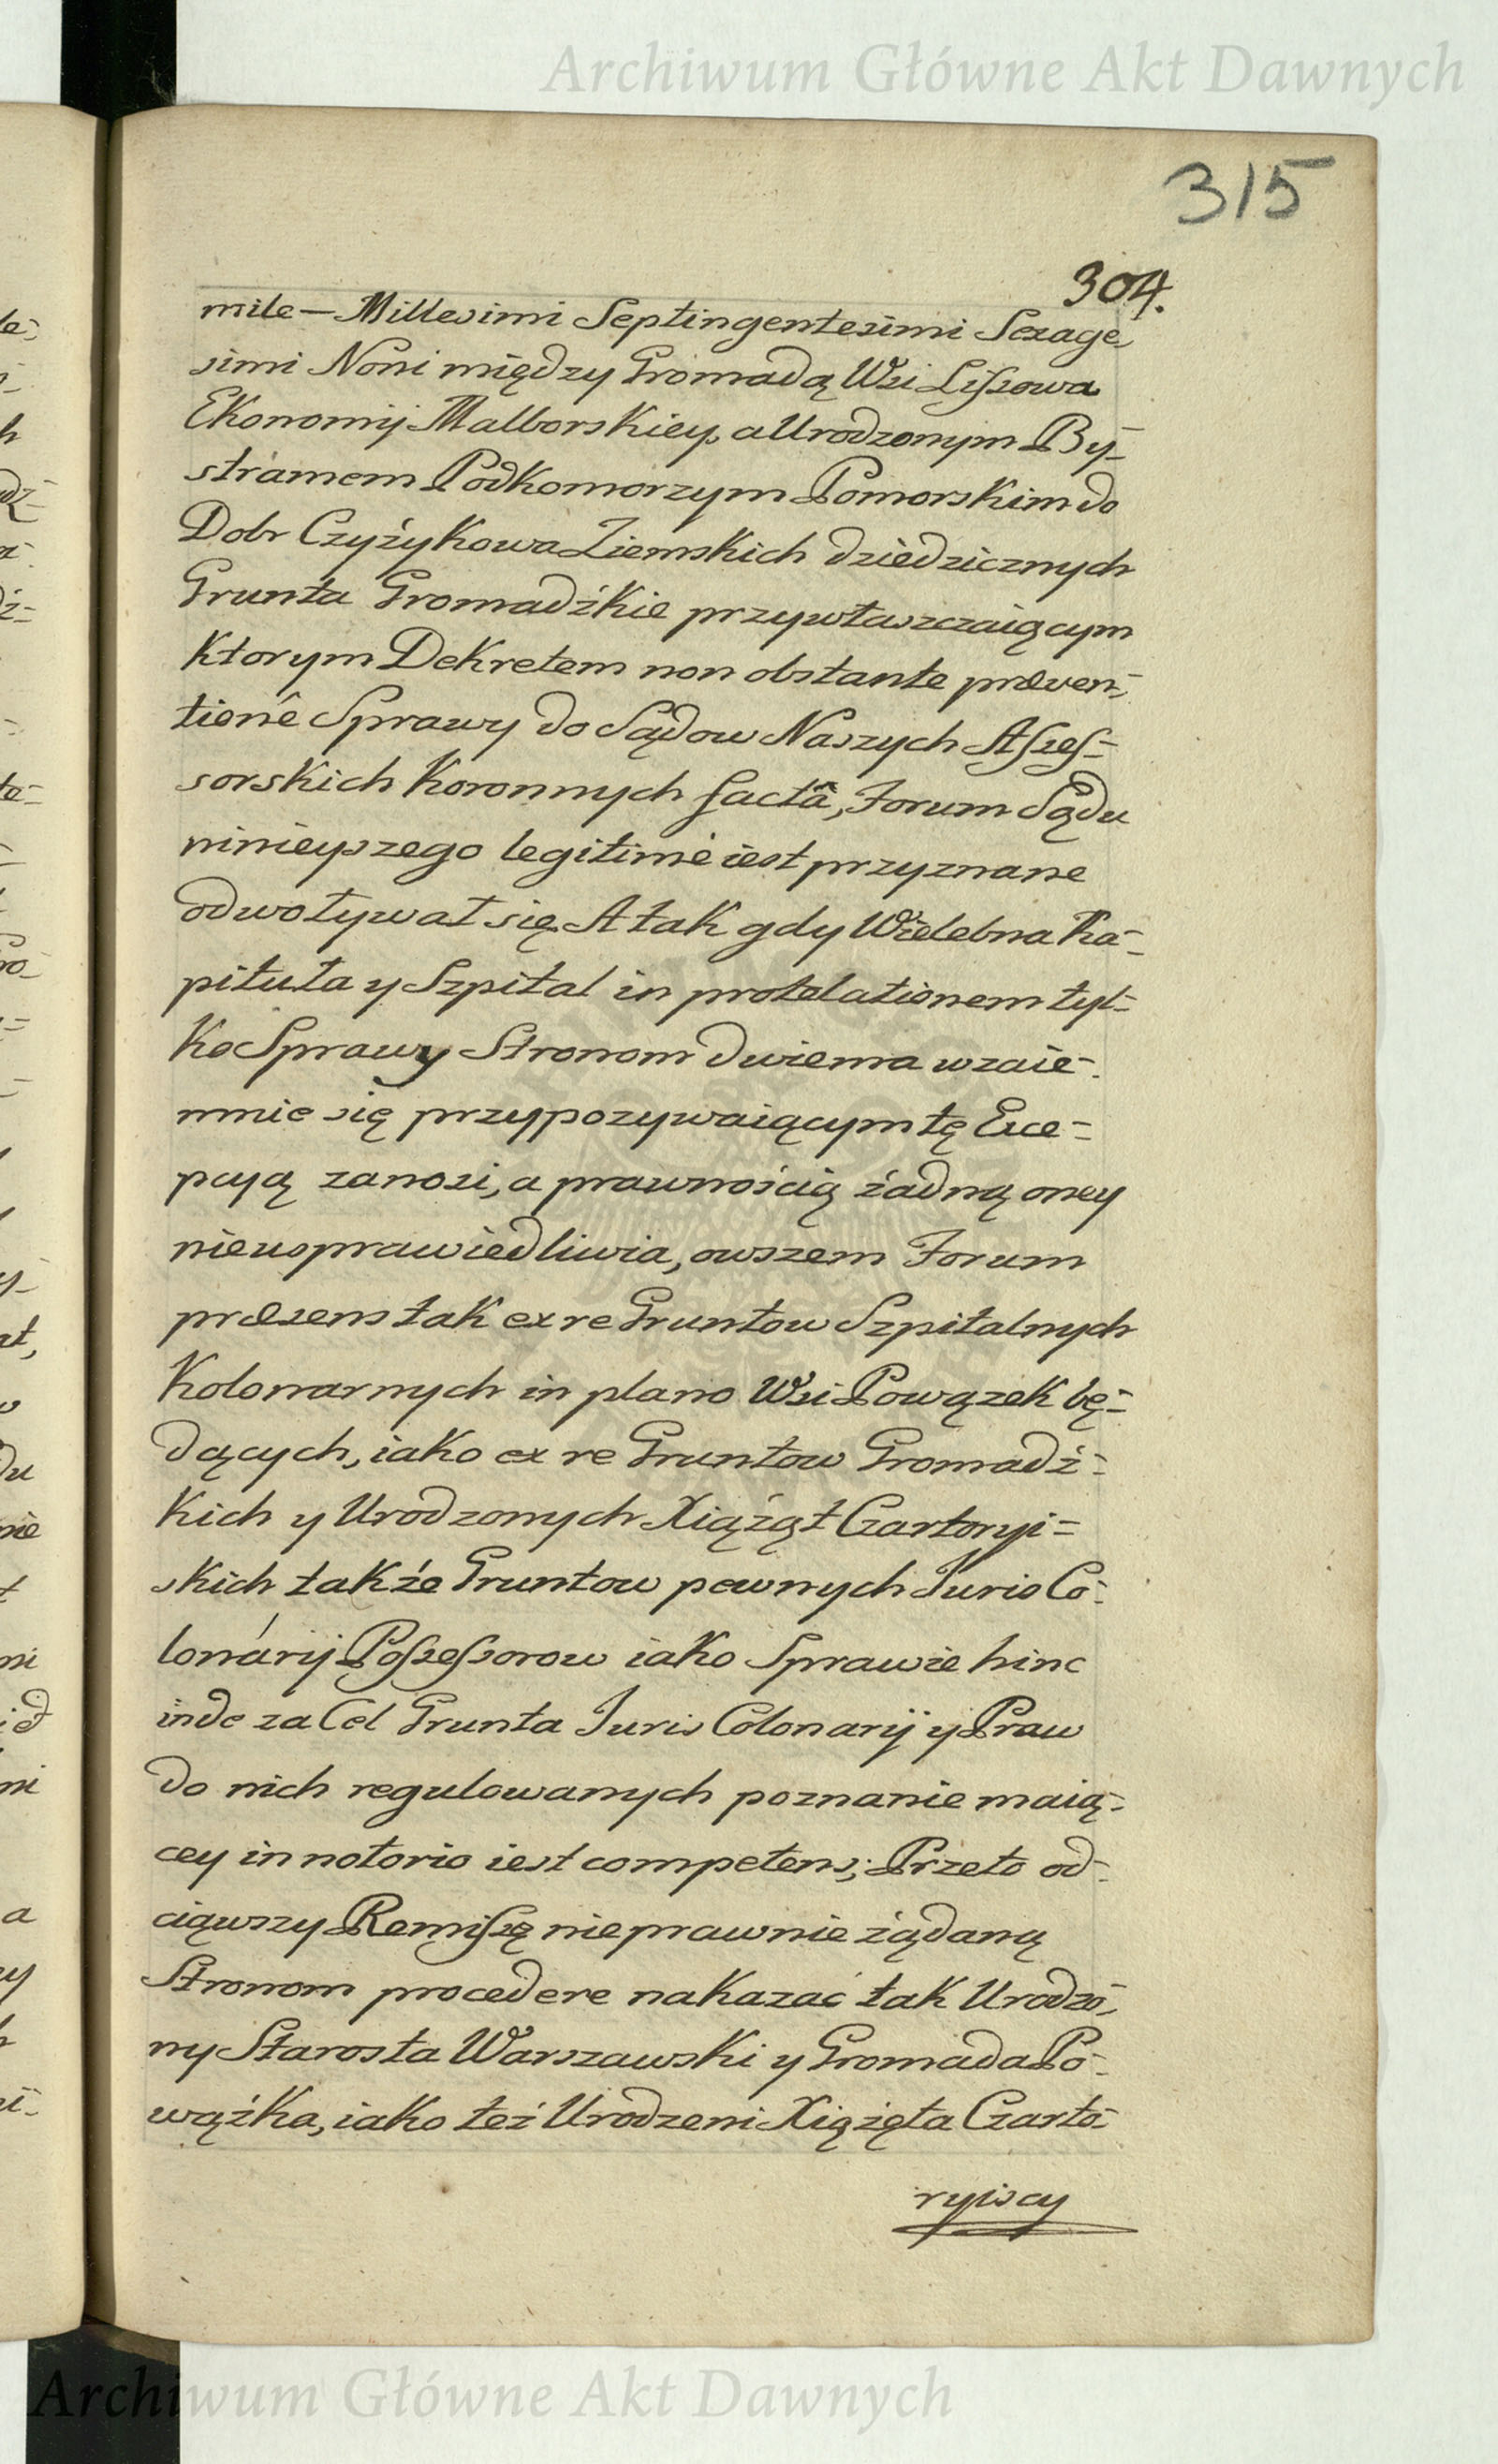 Archiwum Główne Akt Dawnych
315
304.
mile — Millesimi Septingentesimi Sexage,
simi Noni między Gromadą Wsi Lissowa
Ekonomij Malborskiey, a Urodzonym By-
stramem Podkomorzym Pomorskim do
Dobr Czyżykowa Ziemskich dziedzicznych
Grunta Gromadźkie przywłaszczaiącym
Ktorym Dekretem non obstante præven-
tione Sprawy do Sądow Naszych Asses-
sorskich Koronnych factâ, Forum Sądu
ninieyszego legitimè iest przyznane
odwoływał się. A tak gdy Wielebna Ka-
pituła y Szpital in protelationem tyl=
ko Sprawy Stronom dwiema wzaie-
mnie się przypozywaiącym tę Exce=
pcyą zanosi, a prawnością żadną oney
nieusprawiedliwia, owszem Forum
præsens tak ex re Gruntow Szpitalnych
Kolonarnych in plano Wsi Powązek bę=
dących, iako ex re Gruntow Gromadź=
kich y Urodzonych Xiążąt Czartoryi=
skich także Gruntow pewnych Juris Co-
lonarij Possessorow iako Sprawie hinc
inde za Cel Grunta Juris Colonarij y Praw
do nich regulowanych poznanie maią-
cey in notorio iest competens; Przeto od-
ciąwszy Remissę nieprawnie żądaną
Stronom procedere nakazać tak Urodzo,
ny Starosta Warszawski y Gromada Po-
wązka, iako też Urodzeni Xiążęta Czarto-
ryiscy
Archiwum Główne Akt Dawnych